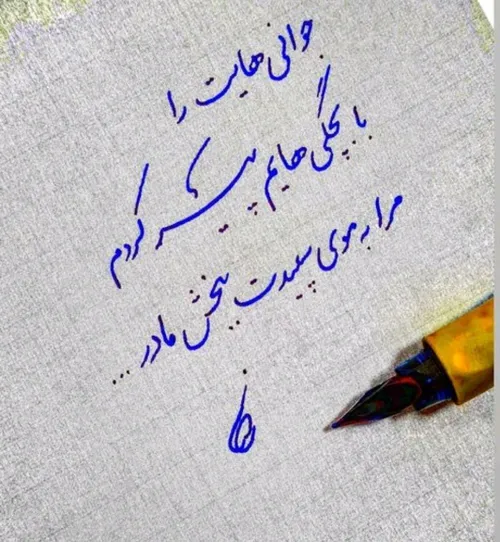 جوانی هایت را
با بچگی هایم پیر کردم
مرا به موی سپیدت ببخش مادر...